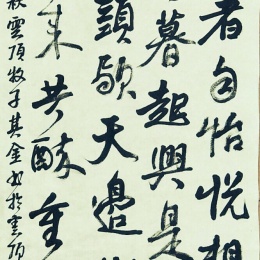 者自怡悦相
暮起興是
頭歇天邊
來共醉重
秋雲頂牧子其金書於雲頂